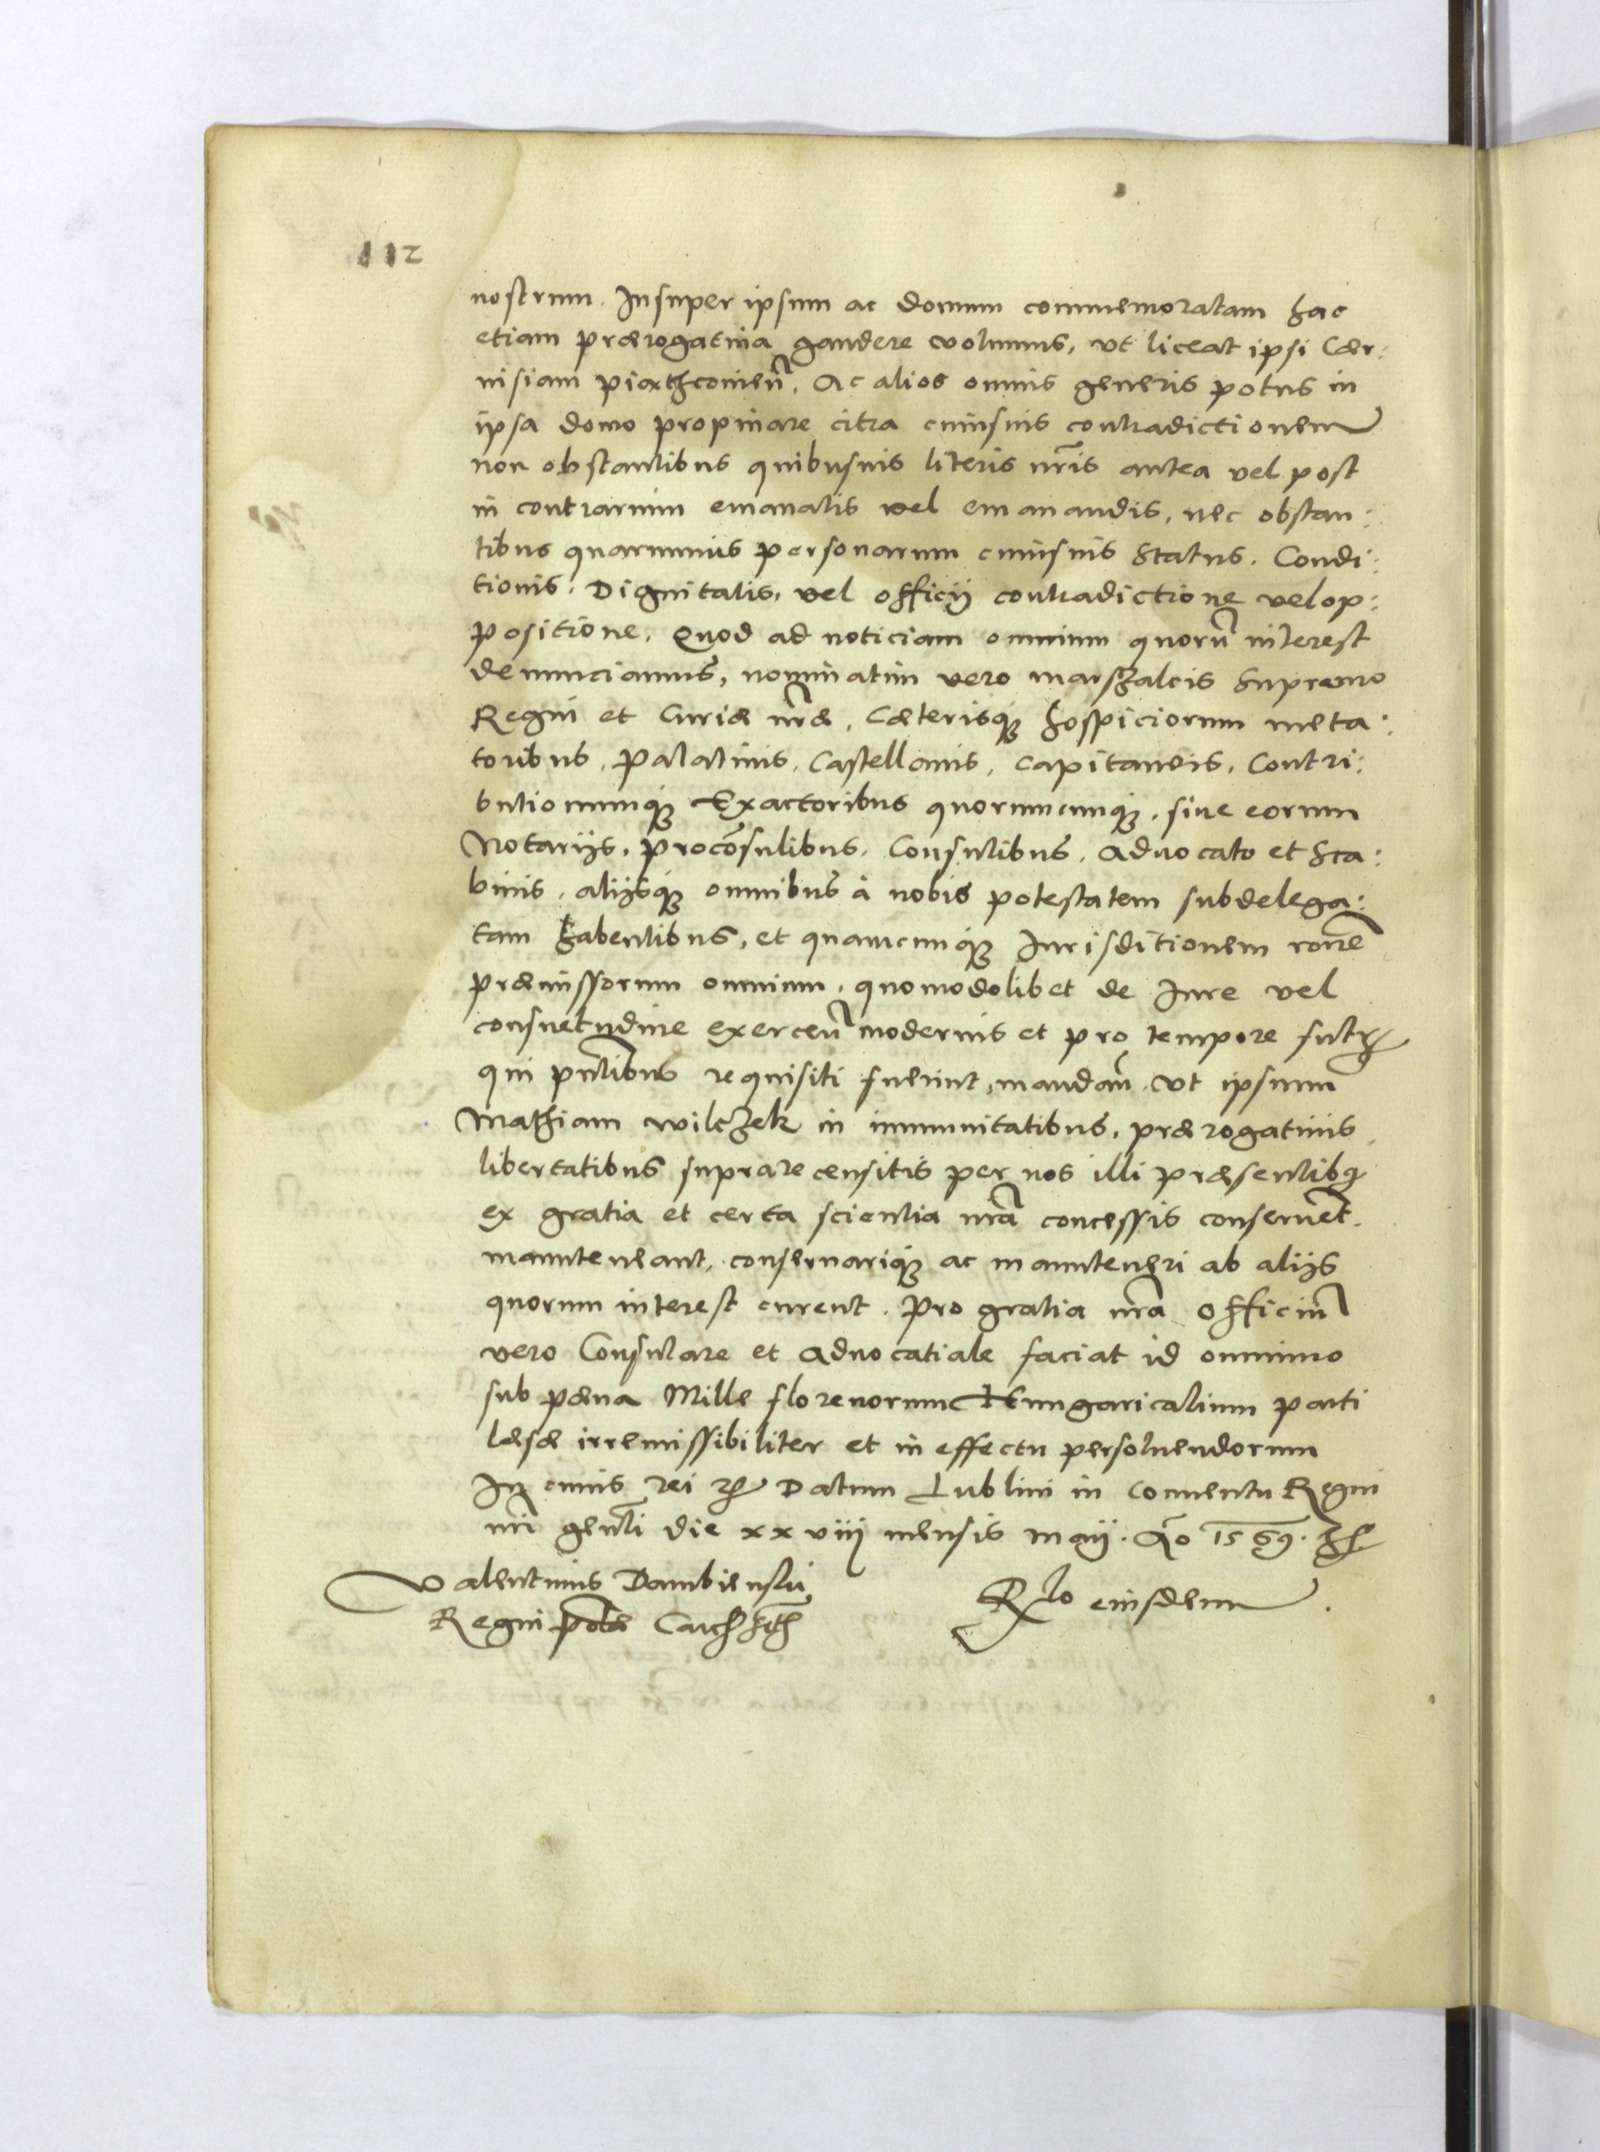 112
nostrum. Insuper ipsum ac domum commemoratam hac
etiam prærogatiua gaudere volumus, vt liceat ipsi Cær:
uisiam piathcouień. Ac alios omnis generis potus in
ipsa domo propinare citra cuiusuis contradictionem
non obstantibus quibusuis literis nr̃is antea vel post
in contrarium emanatis vel emanandis, nec obstan:
tibus quarumuis personarum cuiusuis status. Condi:
tionis. Dignitatis, vel officij contradictione vel op:
positione. Quod ad noticiam omnium quorũ interest
denunciamus, nominatim vero marszalcis supremo
Regni et Curiæ nr̃æ, Cæterisq́ hospiciorum meta:
toribus, Palatinis, Castellanis, Capitaneis, Contri:
butionumq́ Exactoribus quorumcunq́, siue eorum
Notarijs, procõsulibus, Consulibus, Aduocato et Sca:
binis, alijsq́ omnibus à nobis potestatem subdelega:
tam habentibus, et quamcunq́ Iurisditionem rone̅
præmissorum omnium, quomodolibet de Iure vel
consuetudine exerceñ modernis et pro tempore futr̃
qui pñtibus requisiti fuerint, mandam̃ vt ipsum
Mathiam Wilczek in immunitatibus, prærogatiuis
libertatibus suprarecensitis per nos illi præsentibꝫ
ex gratia et certa scientia nr̃a concessis conseruẽt.
manuteneant, conseruariq́ ac manuteneri ab alijs
quorum interest curent. Pro gratia nr̃a Officiũ
vero Consulare et Aduocatiale faciat id omnino
sub pæna Mille florenorum Hungaricalium parti
læsæ irremissibiliter et in effectu persoluendorum
In cuius rei ꝛc̃ Datum Lublini in Conuentu Regni
nr̃i geñli die xxviij mensis Maij. Ão 1569.
Valentinus Dambienski
Regni Poloñ Canc̃
Rlo eiusdem.